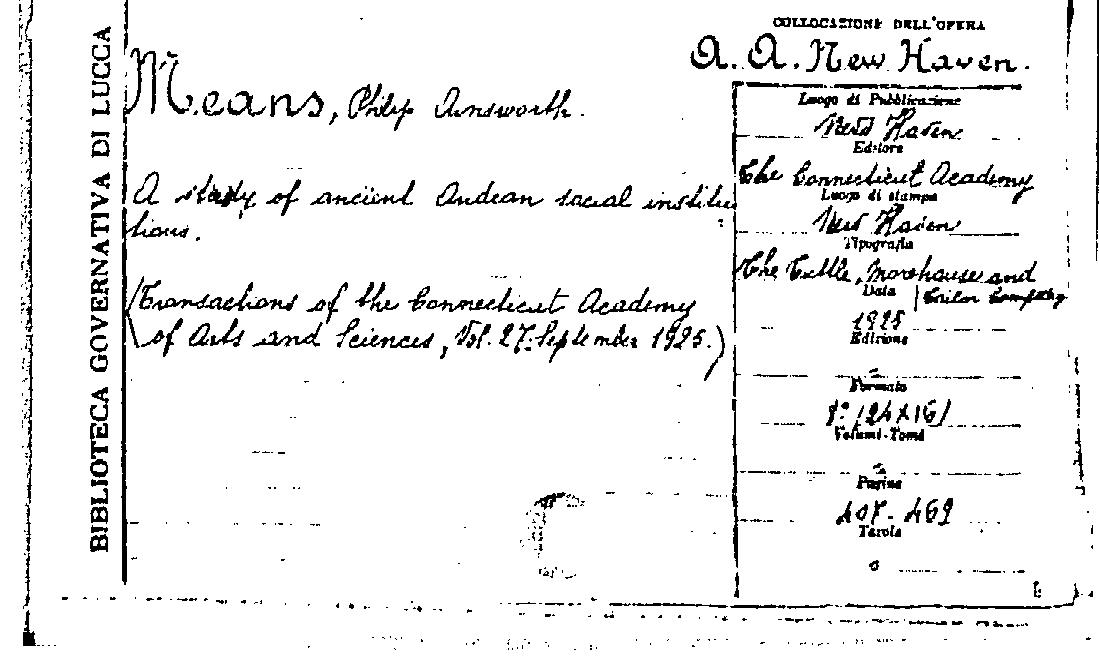 BIBLIOTECA GOVERNATIVA DI LUCCA
COLLOCAZIONE DELL'OPERA
A. A. New Haven.
Means, Philip Ainsworth.
A study of ancient Andean social institu
tions.
(Transactions of the Connecticut Academy
of Arts and Sciences, Vol. 27: September 1925.)
Luogo di Pubblicazione
New Haven
Editore
The Connecticut Academy
Luogo di stampa
New Haven
Tipografia
The Tuttle, Morehouse and
Data
1925
Edizione
Formato
8° (24x16)
Volumi-Tomi
Pagine
407-469
Tavole